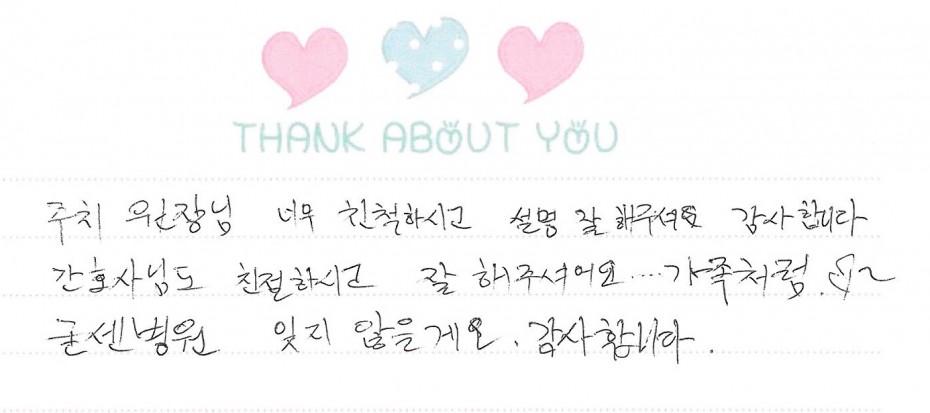 THANK ABOUT YOU
주치 원장님 너무 친척하시고 설명 잘 해주셔요 감사합니다
간호사님도 친절하시고 잘 해주셔어요....가족처럼.♡~
굳센병원 잊지 않을게요. 감사합니다.